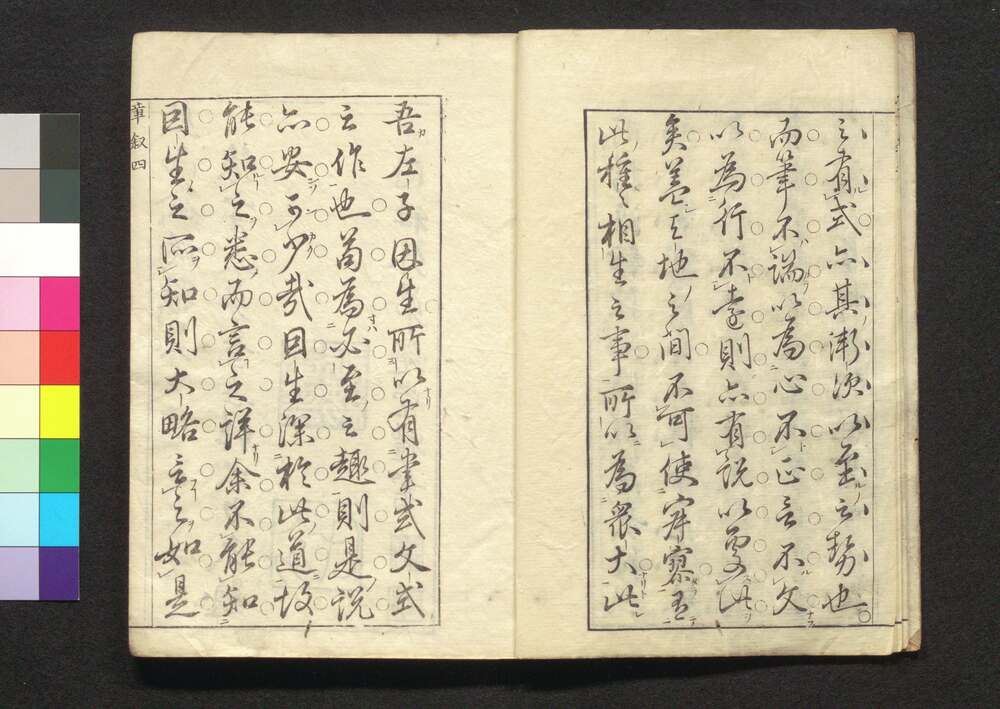 之有式亦其漸次以至之勢也
而筆不端以為心不正言不文
以為行不遠則亦有說以
矣蓋天地之間不可使
此種々相生之事所以為衆大此
吾左子因生所以有掌式文式
之作也苟為必至之趣則是說
亦安可少哉因生深於此道故
能知之悉而言之詳余不能知
因生之所知則大略言之如是
華叙四